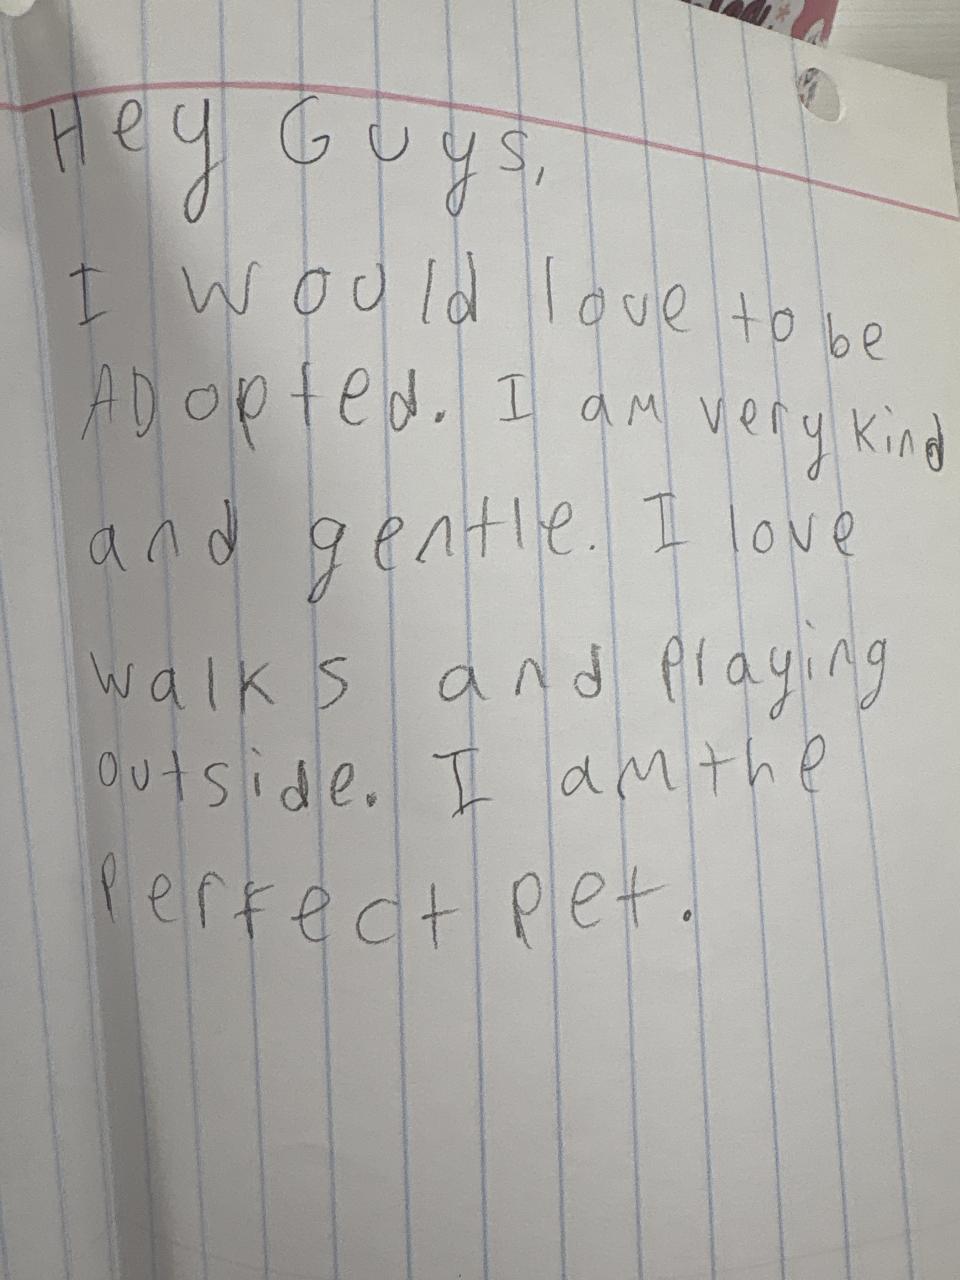 Hey Guys,
I would love to be
ADopted. I am very kind
and gentle. I love
walks and playing
outside. I am the
perfect pet.